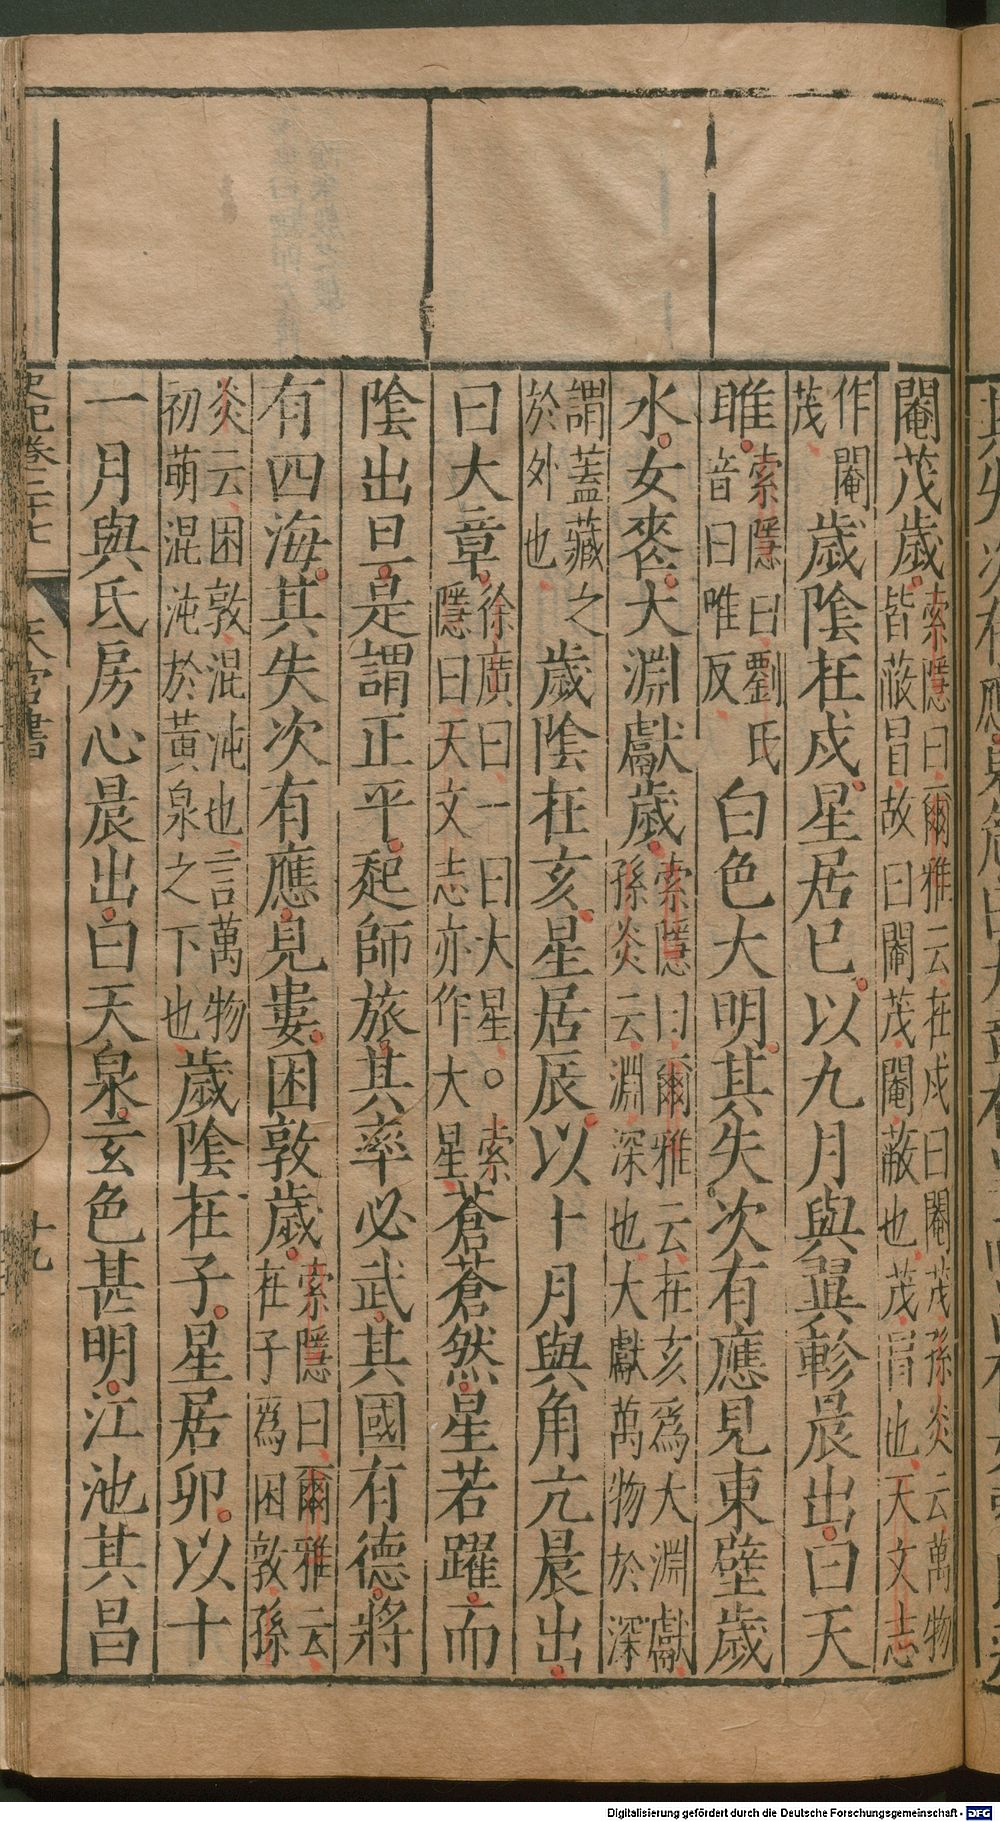 閹茂歲索隱曰爾雅云在戌曰閹茂孫炎云萬物
皆蔽冒故曰閹茂閹蔽也茂冒也天文志
作閹
茂歲陰在戌星居巳以九月與翼軫晨出曰天
睢索隱曰劉氏
音曰唯反白色大明其失次有應見東壁歲
水女喪大淵獻歲索隱曰爾雅云在亥爲大淵獻
孫炎云淵深也大獻萬物於深
謂蓋藏之
於外也歲陰在亥星居辰以十月與角亢晨出
曰大章徐廣曰一曰大星○索
隱曰天文志亦作大星蒼蒼然星若躍而
陰出旦是謂正平起師旅其率必武其國有德將
有四海其失次有應見婁困敦歲索隱曰爾雅云
在子爲困敦孫
炎云困敦混沌也言萬物
初萌混沌於黃泉之下也歲陰在子星居卯以十
一月與氐房心晨出曰天泉玄色甚明江池其昌
史記卷二十七
天官書
十九
Digitalisierung gefördert durch die Deutsche Forschungsgemeinschaft - DFG